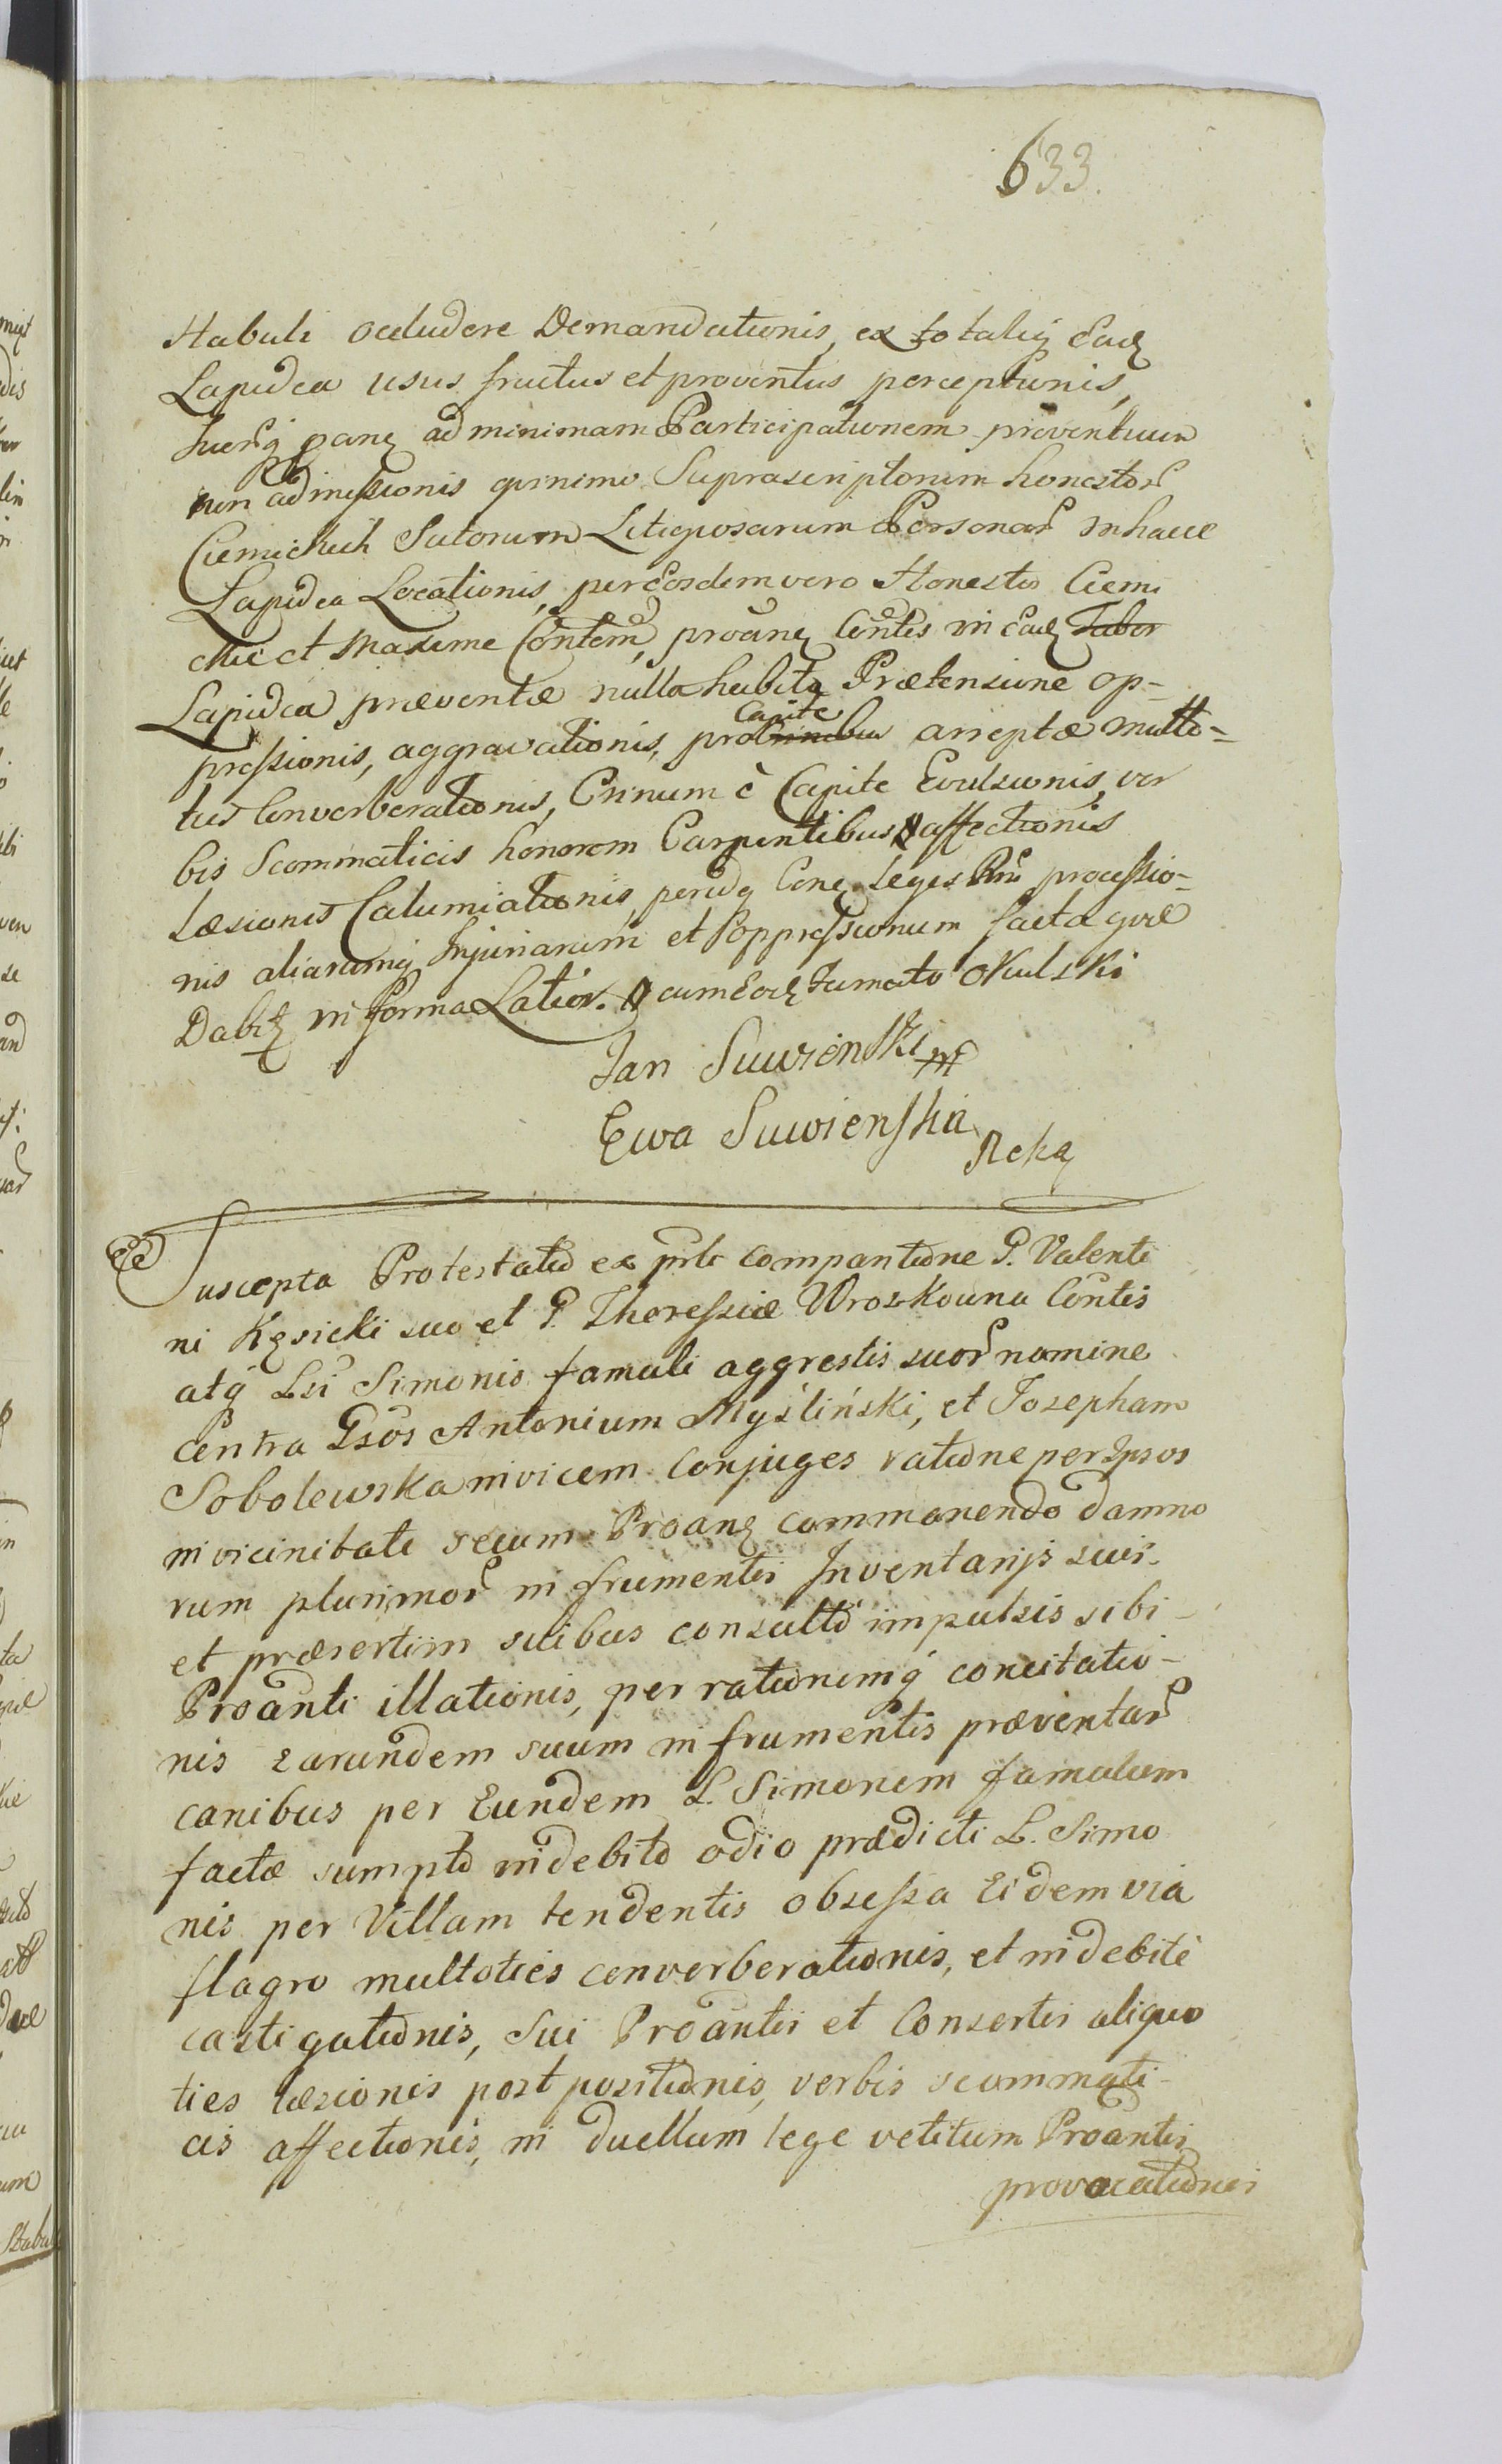 633.
Stabuli occludere Demandationis, ex totaliq Eadz
Lapidea usus fructus et proventus perceptionis,
ad minimam Participationem proventuum
non admissionis quinimo Suprascriptorum honestor
Ciemickich Sutorum Litigiosarum Personar in hacce
Lapidea Locationis, per Eosdem vero Honestos Ciemi
ckie et maxime Contem, proanz Contis in Eadz Tabor
Lapidea praeventae nulla habita Praetensione op-
pressionis, aggravationis, pro Crinibus Capite arreptae multo-
ties Converberationis, Crinum è Capite Evulsionis, ver
bis Scommaticis honorem Carpentibus affectionis
Laesionis Calumiationis, Conz Leges processio-
nis aliarumq Injuriarum et oppressionum facta quae
Dabitz in forma Latior. cum Eodz Jumato Okulski
Jan Suwienski mp
Ewa Suwienska
Ręką
Suscepta Protestatio ex prti compantione P. Valenti
ni Kęsicki suo et P. Theressiae Wroskowna Contis
atq Lsi Simonis famuli aggrestis suor nomine
contra Gsos Antonium Myśliński, et Josepham
Sobolewska invicem Conjuges ratione per Ipsos
in vicinitate secum Proanz commonendo damno
rum plurimor in frumentis Inventarijs suis-
et praesertim suibus consulto impulsis sibi-
Proanti illationis, per rationemq concitatio-
nis earundem suum in frumentis praeventar
canibus per Eundem L. Simonem famulum
factae sumpto indebito odio praedicti L. Simo
nis per Villam tendentis obsessa Eidem via
flagro multoties converberationis, et indebitè
castigationis, Sui Proantis et Consortis aliquo
ties laesionis post positionis, verbis scommati-
cis affectionis, in duellum lege vetitum Proantis
provocationis